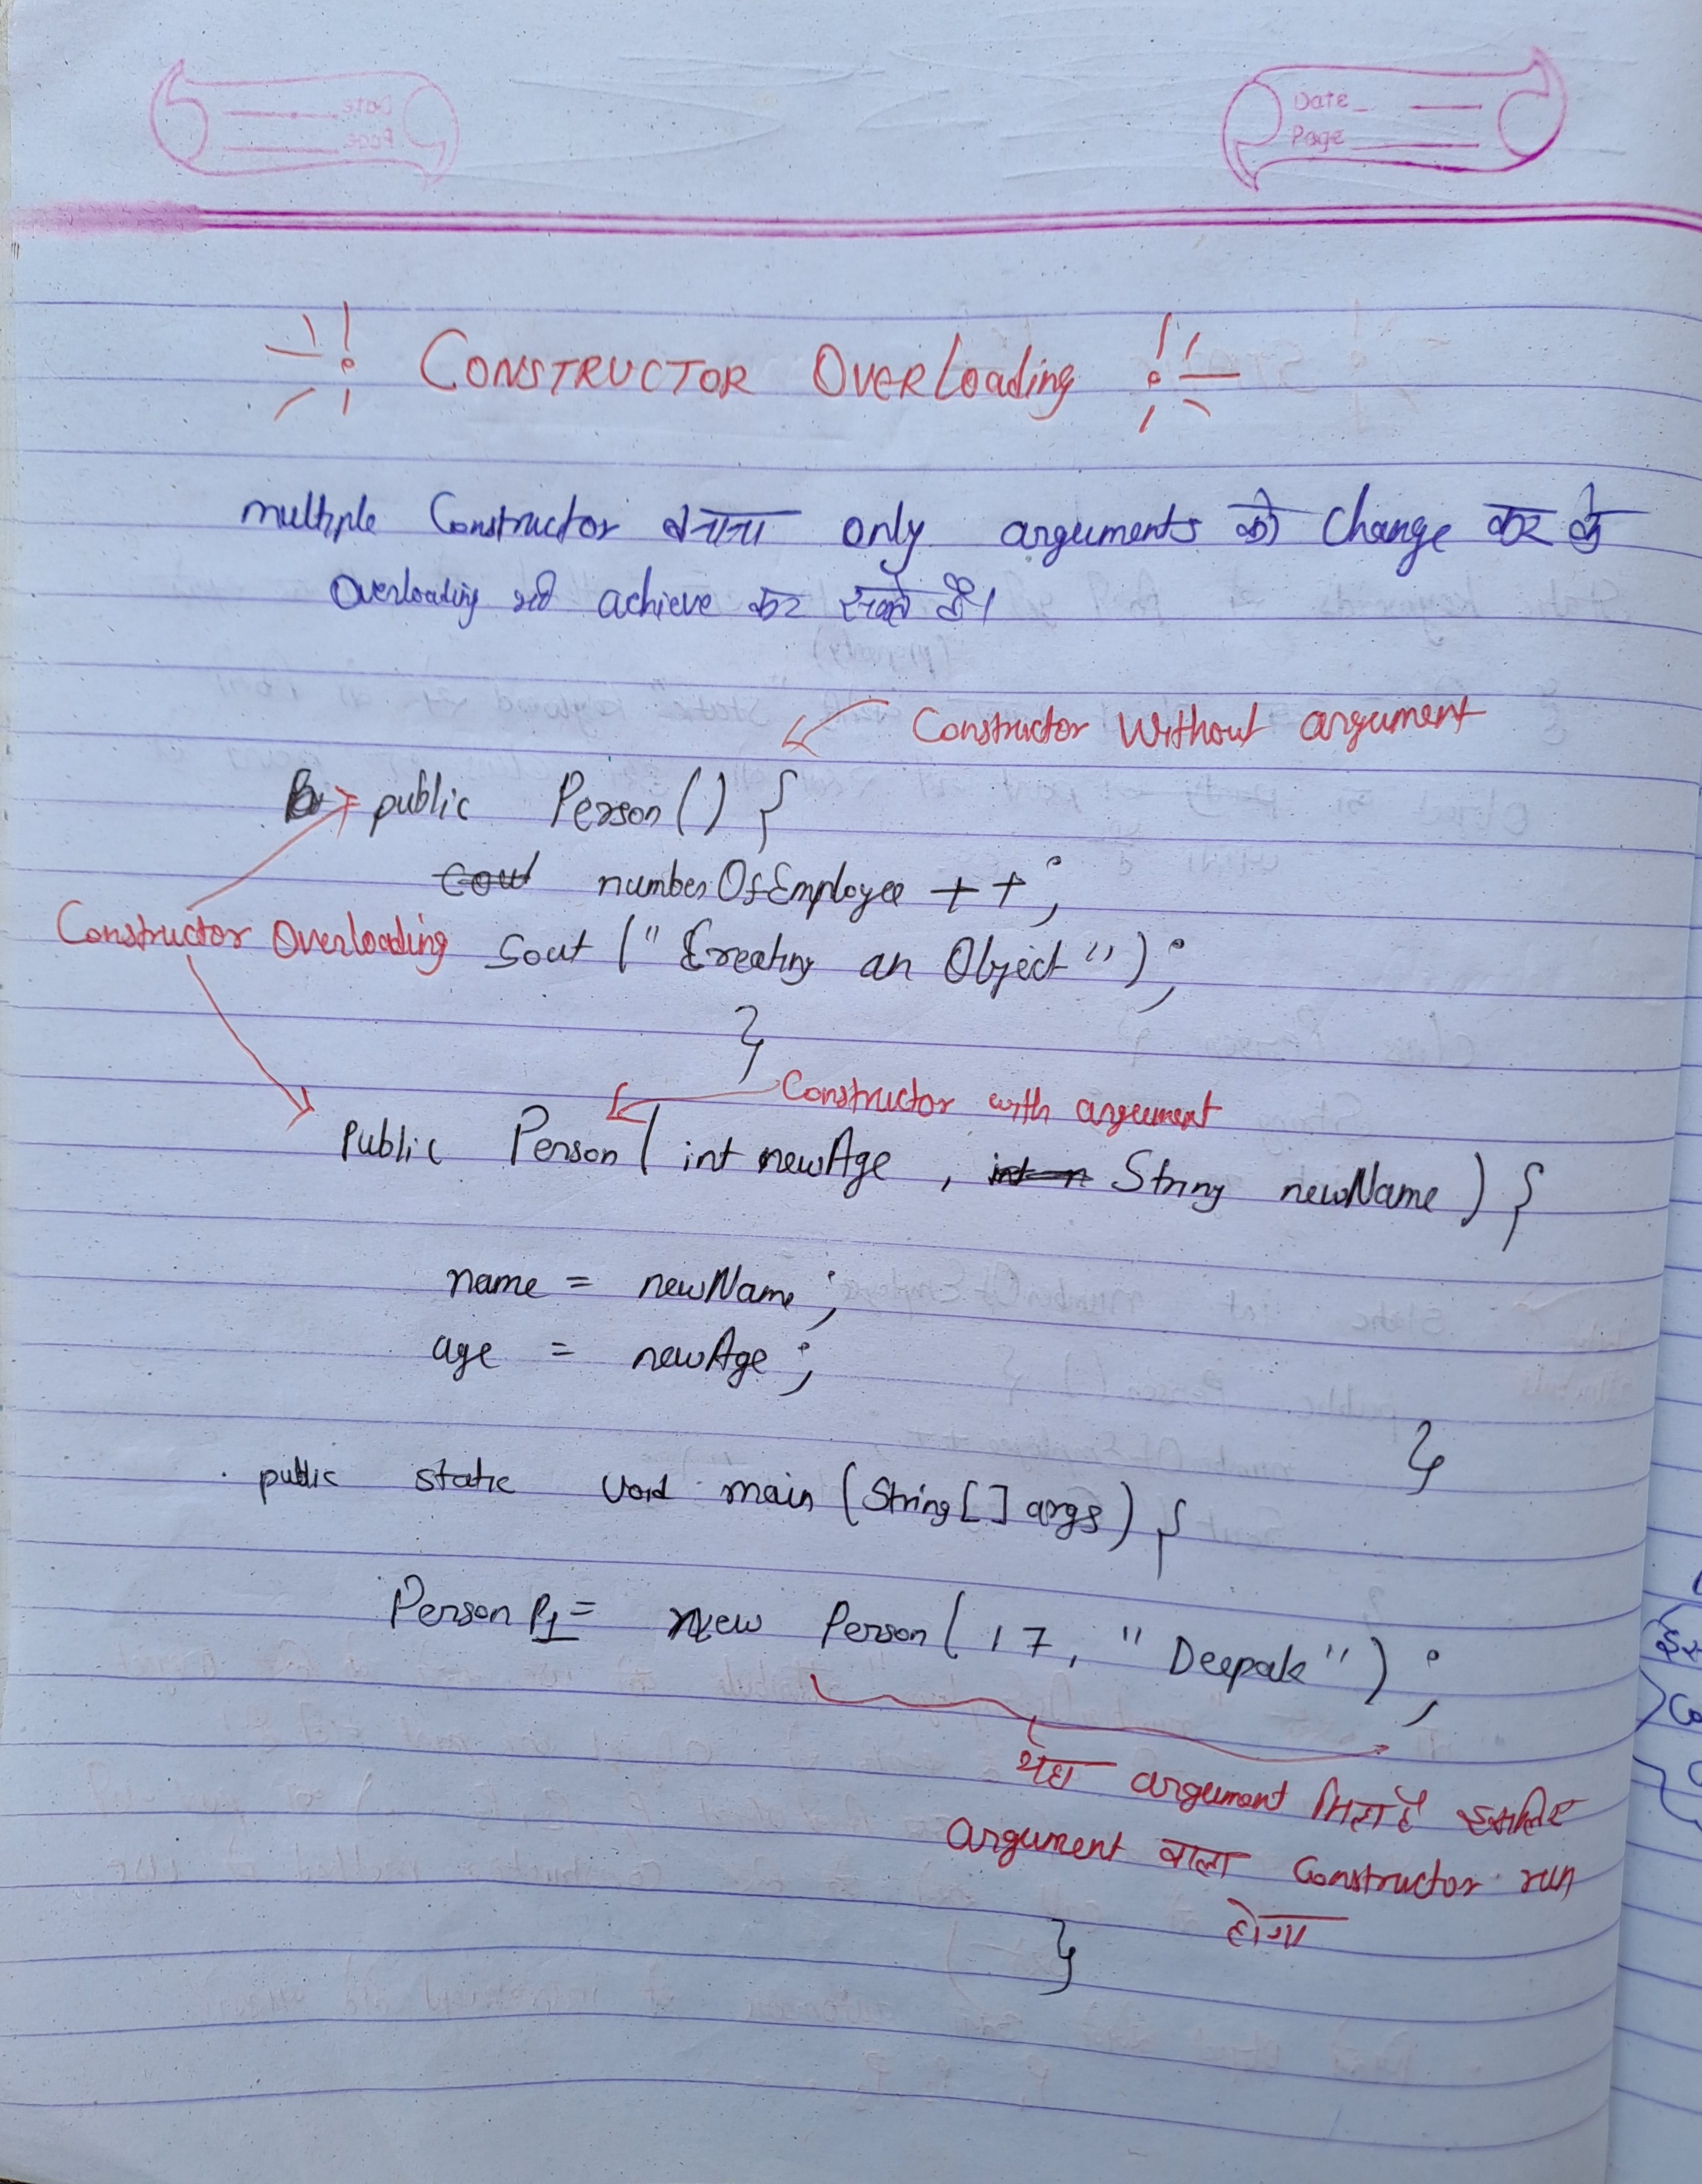 Date
Page
CONSTRUCTOR OVERLoading
multiple Constructor बनाना only arguments को change कर के
Overloading को achieve कर सकते हैं।
Constructor Without argument
public Person() {
numberOfEmployee ++;
Constructor Overloading
Sout ("Creating an Object");
}
Constructor with argument
public Person( int newAge , String newName ) {
name = newName;
age = newAge;
}
public static void main (String[] args) {
Person P1 = new Person( 17, "Deepak" );
यहा argument मिला है इसलिए
argument वाला Constructor run
होगा
}